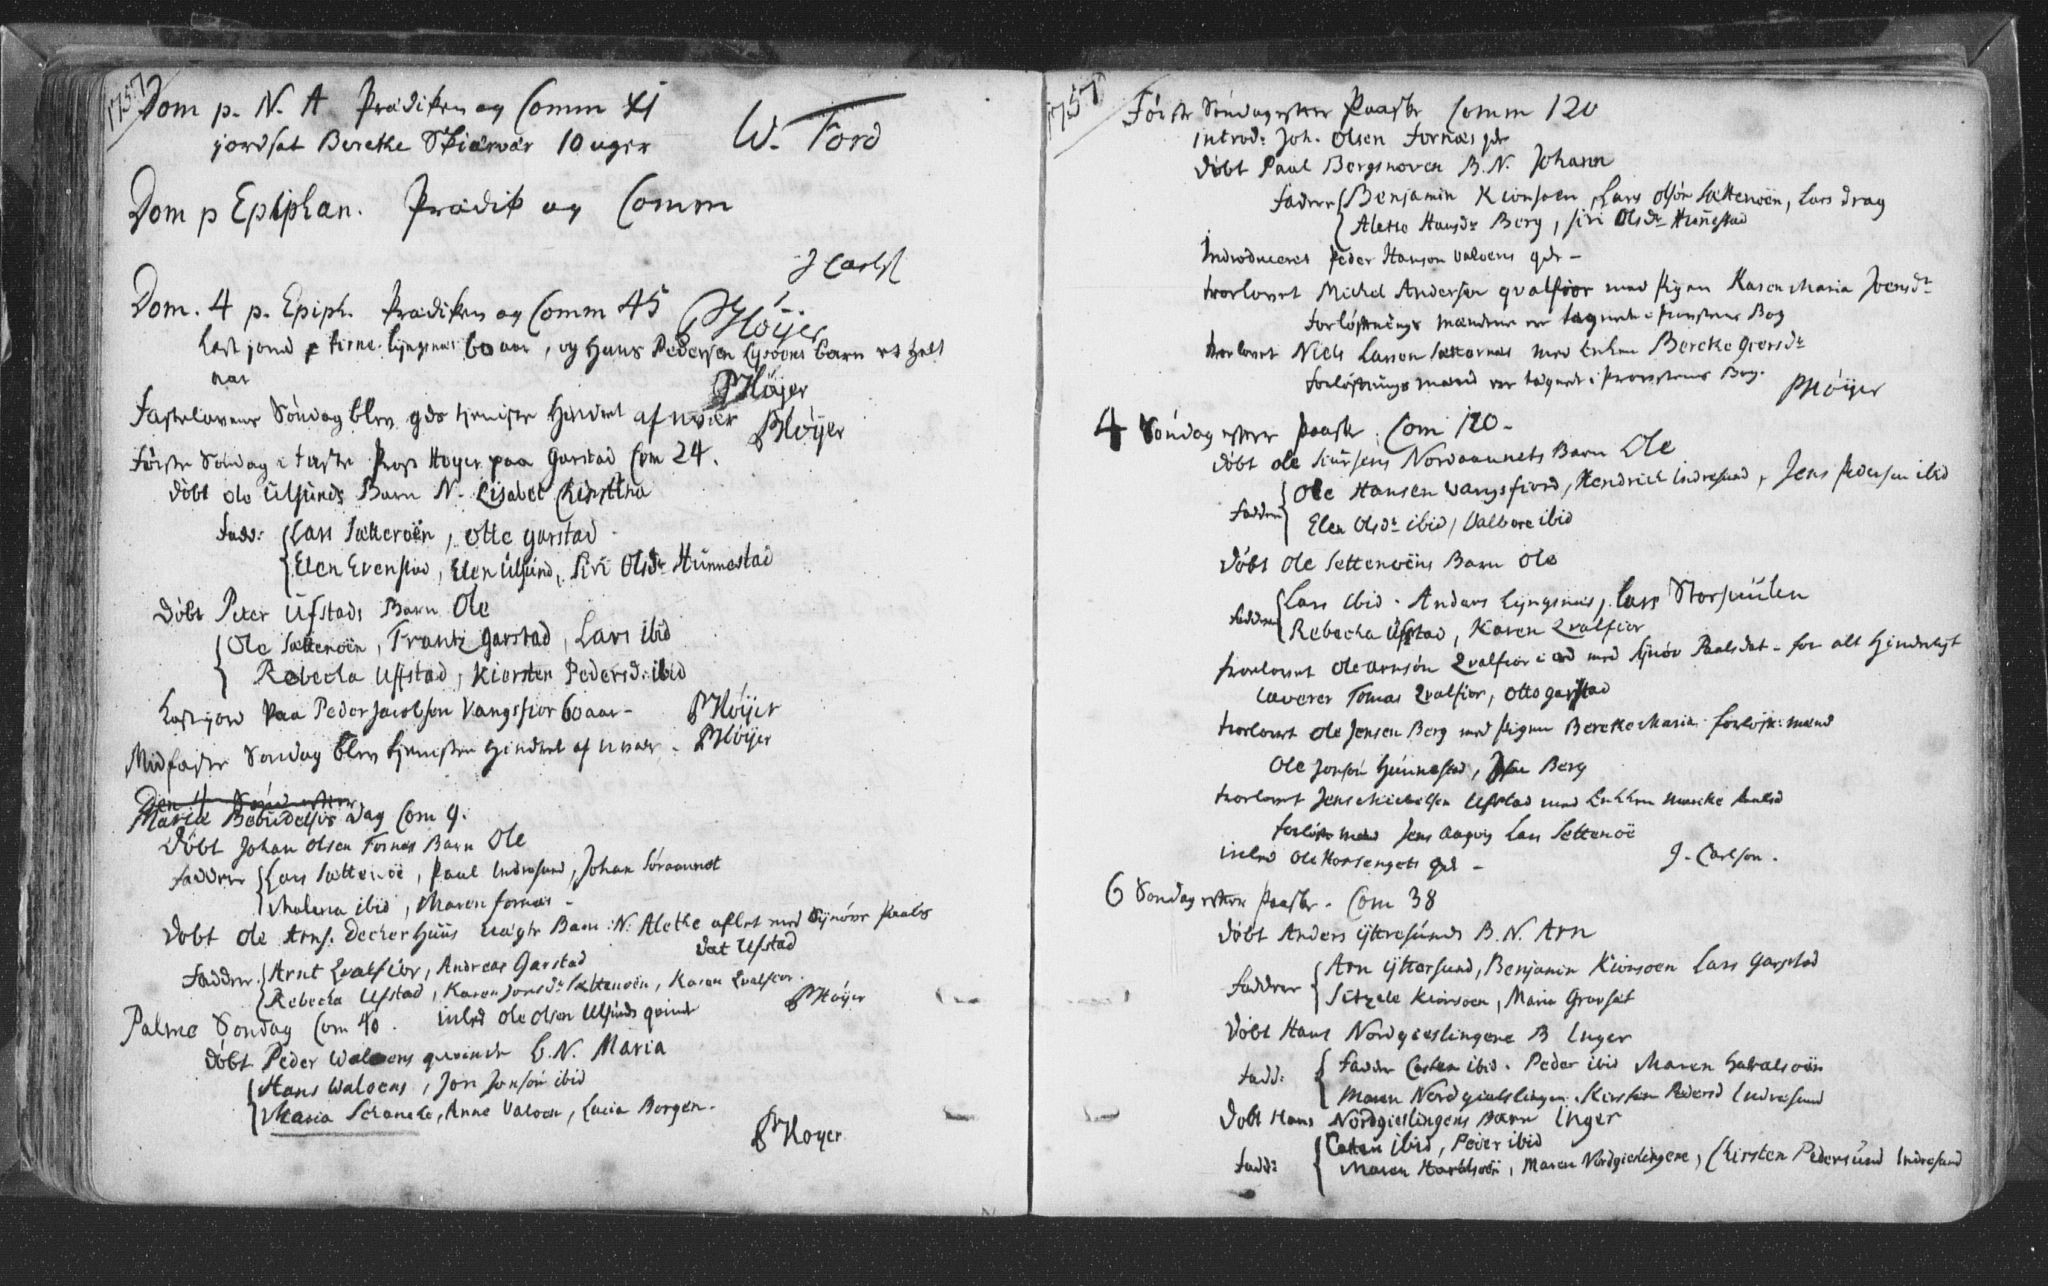 1757
Dom p. N. A Prædiken og Comm 41
jordsat Bereke Skiærvær 10 uger
W. Ford
Dom p Epiphan. Prædik og Comm
J Carls
Dom. 4 p. Epiph. Prædiken og Comm 45
PHöyer
Kast jord p Lyngsnæs 60 aar, og Hans Pedersen Lysöens barn et halt
aar
PHöyer
Fastelavens Söndag blev gds tieniste hindret af uvær
PHöyer
Förste Söndag i faste Prox Hoyer paa Garstad Com 24.
Döbt Ole Ulsunds Barn N. Lisabet Christina
Fadd: Lars Sætteröen, Otte garstad
Elen Evenstad, Elen Ulsund, Siri Olsdr Hunnestad
Döbt Peter Ufstads Barn Ole
Ole Sættenöen, Frantz Garstad, Lars ibid
Rebecka Uffstad, Kiersten Pedersd: ibid
Kast jord paa Peder Jacobsen Vangsfior 60 aar -
PHöyer
Midfaste Söndag blev tieniste hindret af uvær -
PHöyer
Den 4 Sönd efter
Mariæ Bebudelses Dag Com 9.
Döbt Johan Olsen Fornæs Barn Ole
Faddere Lars Sættenöe, Paul Indresund, Johan Söraunet
Malena ibid, Maren fornæs -
Döbt Ole Arns. Deckerhuus uægte Barn: N. Aletke aflet med Synöve Paals
dat Ufstad
Faddere Arnt Qvalfior, Andreas Garstad
Rebecka Ufstad, Karen Jonsdr Sættenöen, Karen Qvalfior.
Palme Söndag Com 40.
inled Ole Olsen Ulsunds qvinde
PHöyer
Döbt Peder Waloens qvinde b. N. Maria
Hans Waloens, Jon Jonsön ibid
Maria Schancke, Anne Valoen, Lucia Borgen.
PHoyer
1757
Förste Söndag efter Paaske Comm 120
introd: Joh. Olsen Fornæs qde
Döbt Paul Bergsnoven B. N. Johann
Faddere Benjamin Kionsoen, Lars Olsön Sættenöen, Lars Drag
Aletke Hansdr Berg, Siri Olsdr Hunestad
Indroduceret Peder Hanson Valoens qde -
trorlovet Michel Andersen qvalfior med pigen Karen Maria Joensdr
forlöftnings mændene er tegnet i Provstens Bog
trorlovet Niels Larsen Sættornæs med Enken Bereke Giersdr
forlöftnings mænd er tegnet i Provstens Bog.
PHöyer
4 Söndag efter Paaske. Com 120 -
Döbt Ole Siursens Nordaunets Barn Ole
Faddere Ole Hansen Vangsfiord, Hendrich Indresund, Jens Pedersen ibid
Elen Olsdr ibid, Valbore ibid
Döbt Ole Settenoëns Barn Ole
Faddere Lars ibid. Anders Lyngsnæs, Lars Storsuulen
Rebecka Ufstad, Karen Qvalfior
trorlovet Ole Arnsön Qvalfior med Synöv Paalsdat - for alt hinderligt
Caverer Tomas Qvalfior, Otto Garstad
trorlovet Ole Jensen Berg med pigen Bereke Maria. forlöft: mænd
Ole Jonsön Hunnestad, Berg
trorlovet Jens Michelsen Ufstad med Enken Paalsd
forlöft mænd Jens Aagvig Lars Settenoë
inled Ole Horsengets qde -
J. Carlson.
6 Söndag efter Paaske. Com 38
Döbt Anders Yttresunds B. N. Arn
Faddere Arn Yttersund, Benjamin Kionsoen Lars Garstad
Sitzele Kionsoen, Maria Gravset
Döbt Hans Nordgieslingene B Inger
Fadd: Fadder Casten ibid. Peder ibid Maren Haralsoën
Maren Nordgieslingen. Kirsten Pedersd Indresund
Döbt Hans Nordgieslingens Barn Inger
Fadd: Casten ibid, Peder ibid
Maren Haralsoën, Maren Nordgieslingene, Chirsten Pedersund Indresund